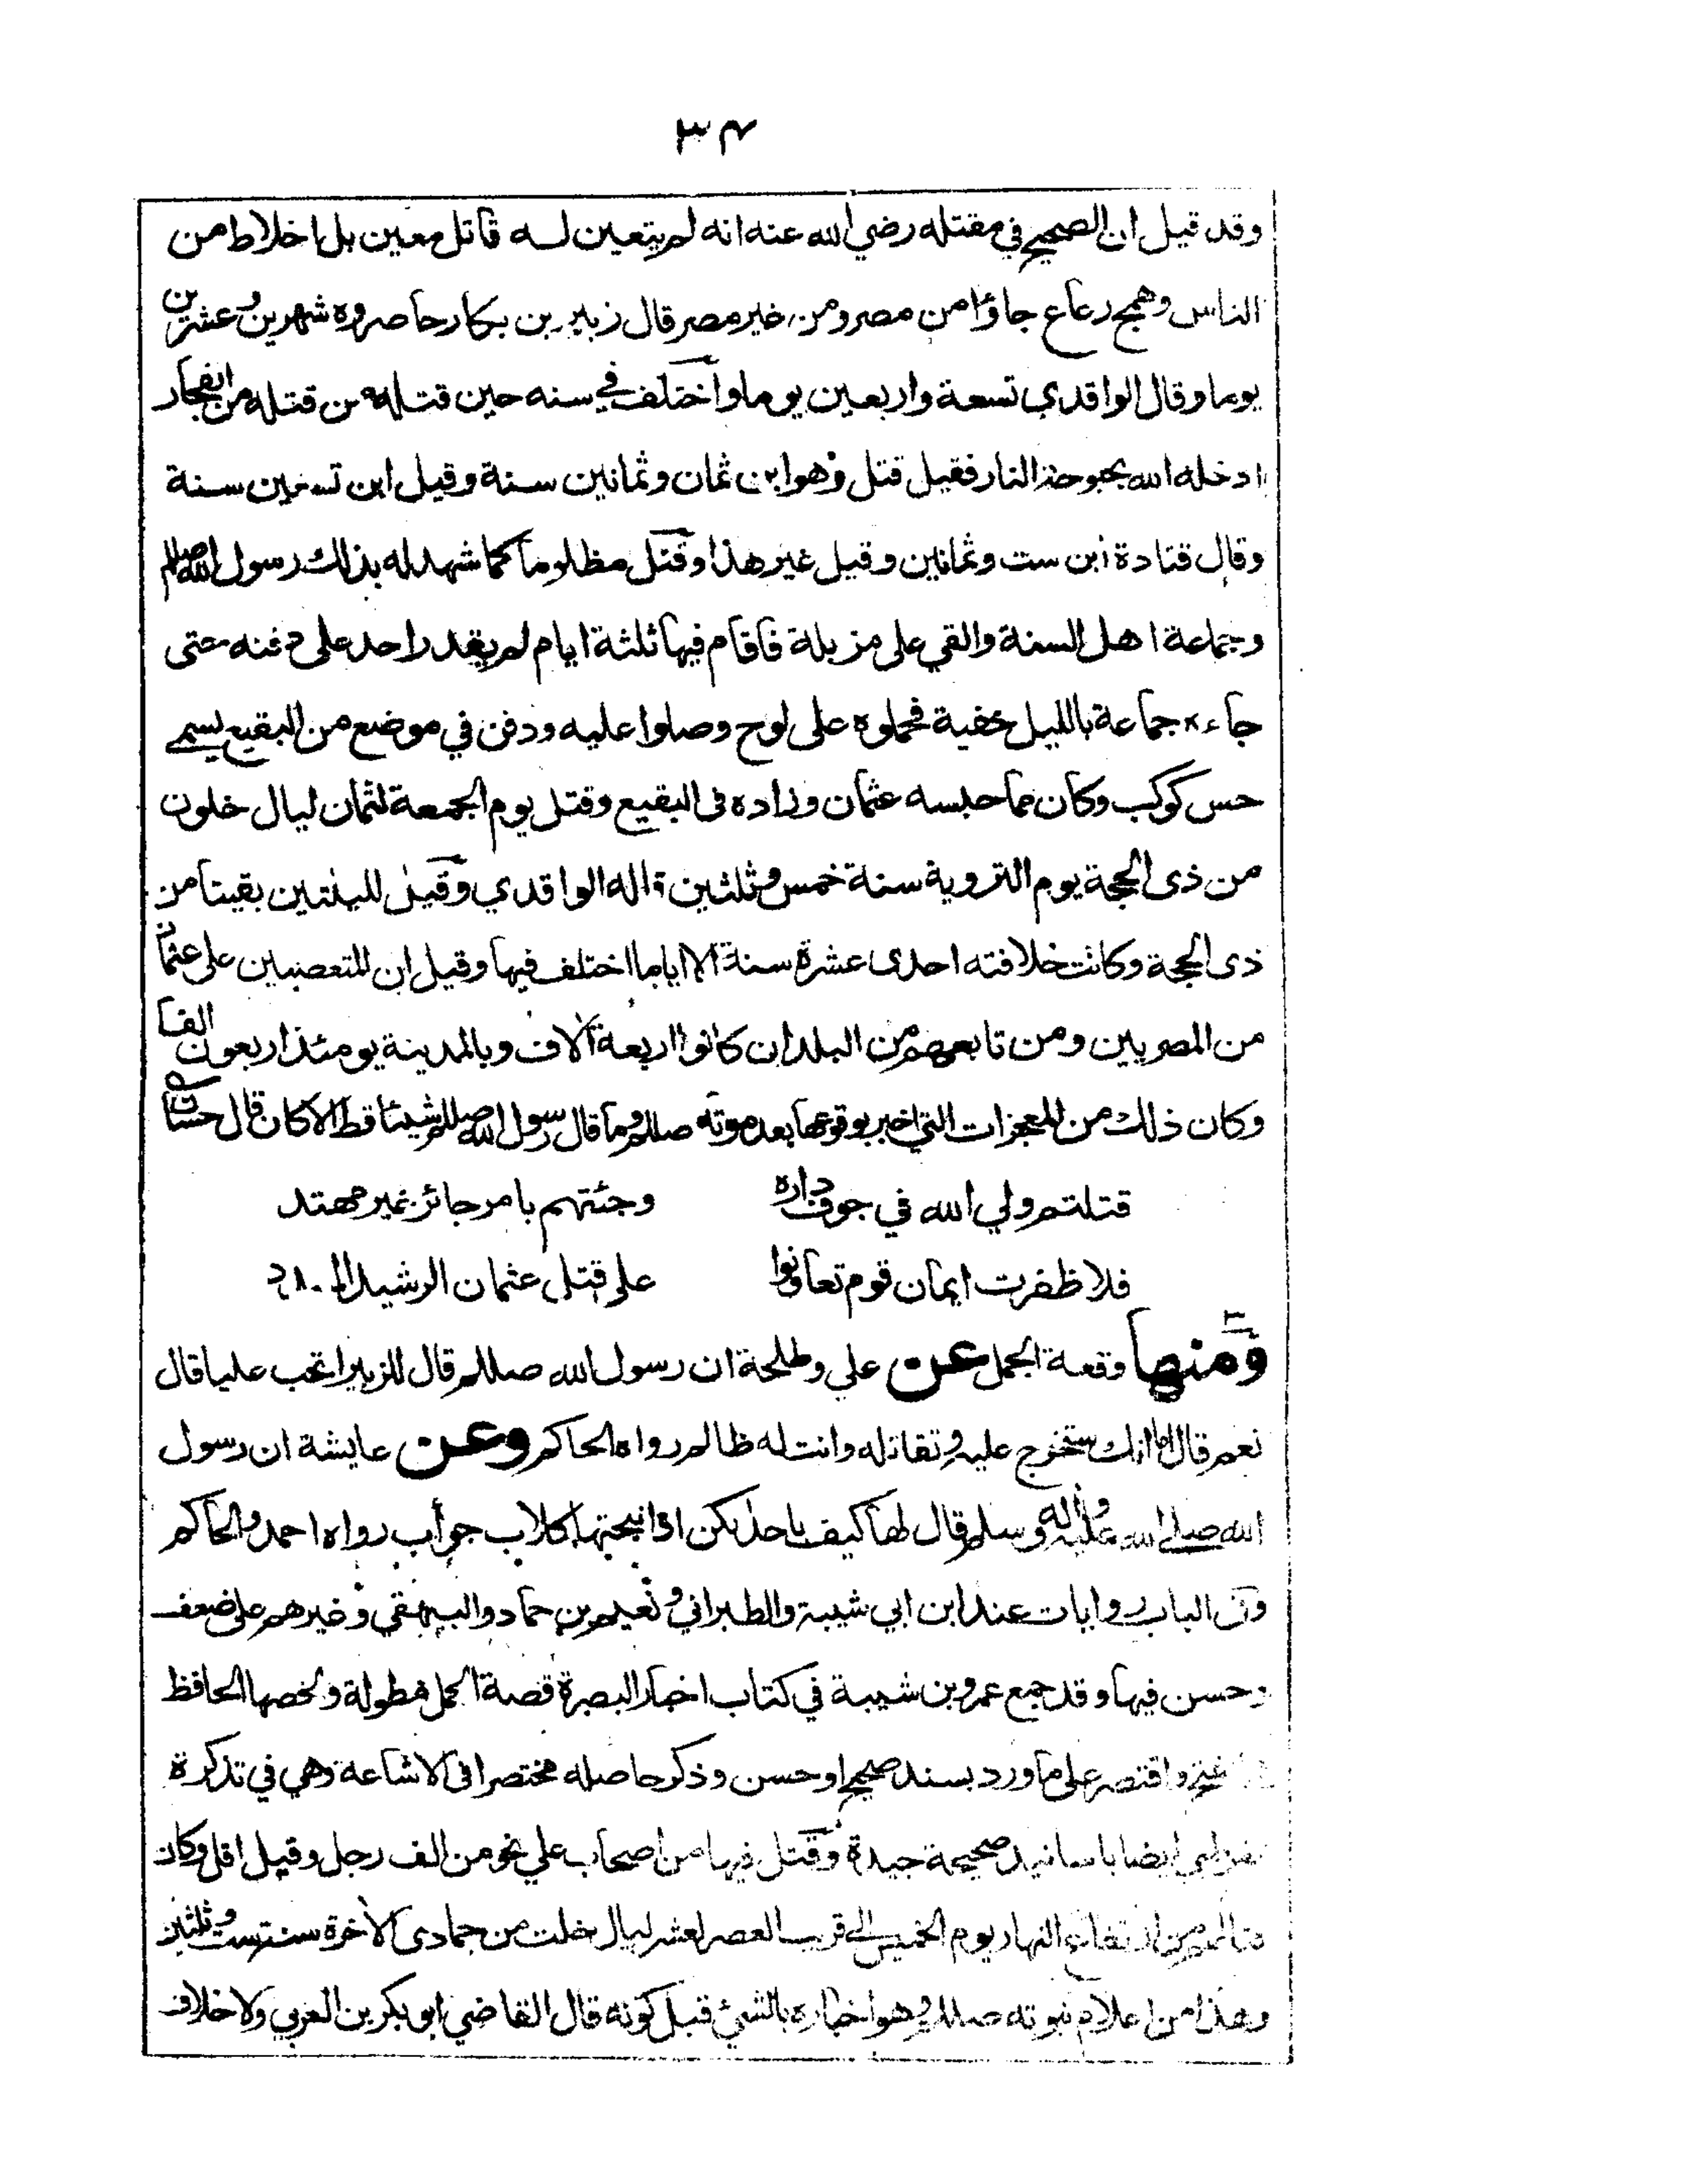 ٣٤
وقد قيل ان الصحيح في مقتله رضي الله عنه انه لم يتعين له قاتل معين بل اخلاط من
الناس وهمج رعاع جاؤا من مصر ومن غير مصر قال زبير بن بكار حاصروه شهرين وعشرين
يوما وقال الواقدي تسعة واربعين يوما واختلف في سنه حين قتله من قتله من الفجار
ادخله الله بحبوحة النار فقيل قتل وهو ابن ثمان وثمانين سنة وقيل ابن تسعين سنة
وقال قتادة ابن ست وثمانين وقيل غير هذا وقتل مظلوما كما شهد له بذلك رسول الله صللم
وجماعة اهل السنة والقي على مزبلة فاقام فيها ثلثة ايام لم يقدر احد على دفنه حتى
جاء جماعة بالليل خفية فحملوه على لوح وصلوا عليه ودفن في موضع من البقيع يسمى
حس كوكب وكان مما حبسه عثمان وزاده فى البقيع وقتل يوم الجمعة لثمان ليال خلون
من ذى الحجة يوم التروية سنة خمس وثلثين قاله الواقدي وقيل لليلتين بقيتا من
ذى الحجة وكانت خلافته احدى عشرة سنة الا اياما اختلف فيها وقيل ان المتعصبين على عثمان
من المصريين ومن تابعهم من البلدان كانوا اربعة آلاف وبالمدينة يومئذ اربعون الفا
وكان ذلك من المعجزات التي اخبر بوقوعها بعد موته صللم وما قال رسول الله صللم شيئا قط الا كان قال حسان
قتلتم ولي الله في جوف داره وجئتهم بامر جائر غير مهتد
فلا ظفرت ايمان قوم تعاونوا على قتل عثمان الرشيد
ومنها وقعة الجمل عن علي وطلحة ان رسول الله صللم قال للزبير اتحب عليا قال
نعم قال اما انك ستخرج عليه وتقاتله وانت له ظالم رواه الحاكم وعن عايشة ان رسول
الله صلى الله عليه واله وسلم قال لها كيف باحدٰىكن اذا نبحتها كلاب حوأب رواه احمد والحاكم
وفي الباب روايات عند ابن ابي شيبة والطبراني ونعيم بن حماد والبيهقي وغيرهم على ضعف
وحسن فيها وقد جمع عمرو بن شيبة في كتاب اخبار البصرة قصة الجمل مطولة ولخصها الحافظ
واقتصر على ما ورد بسند صحيح او حسن وذكر حاصله مختصرا فى الاشاعة وهي في تذكرة
ايضا باسانيد صحيحة جيدة وقتل فيها من اصحاب علي نحو من الف رجل وقيل اقل وكان
من ارتفاع النهار يوم الخميس الى قريب العصر لعشر ليال خلت من جمادى الاخرة سنة ست وثلثين
وهذا من اعلام نبوته صللم وهو اخباره بالشئ قبل كونه قال القاضي ابو بكر بن العربي ولا خلاف